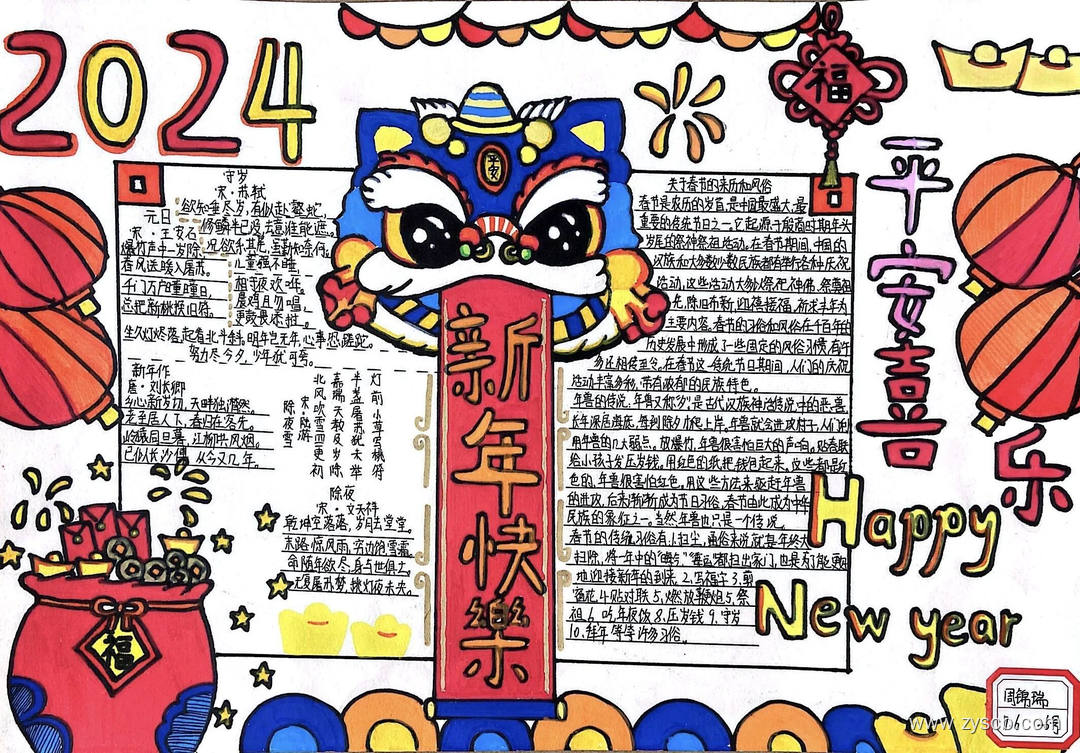 2024
福
平安
平安喜乐
新年快樂
Happy
New year
福
守岁
宋·苏轼
欲知垂尽岁,有似赴壑蛇,
修鳞半已没,去意谁能遮。
况欲系其尾,虽勤知奈何。
儿童强不睡
相守夜欢哗。
晨鸡且勿唱,
更鼓畏添挝。
坐久灯烬落,起看北斗斜,明年岂无年,心事恐蹉跎。
努力尽今夕,少年犹可夸。
元日
宋·王安石
爆竹声中一岁除,
春风送暖入屠苏。
千门万户曈曈日,
总把新桃换旧符。
新年作
唐·刘长卿
乡心新岁切,天畔独潸然。
老至居人下,春归在客先。
岭猿同旦暮,江柳共风烟。
已似长沙傅,从今又几年。
除夜雪
宋·陆游
北风吹雪四更初
嘉瑞天教及岁除
半盏屠苏犹未举
灯前小草写桃符
除夜
宋·文天祥
乾坤空落落,岁月去堂堂。
末路惊风雨,穷边饱雪霜。
命随年欲尽,身与世俱亡
无复屠苏梦,挑灯夜未央。
关于春节的来历和风俗
春节是农历的岁首,是中国最盛大,最
重要的传统节日之一。它起源于殷商时期年头
岁尾的祭神祭祖活动。在春节期间,中国的
汉族和大多数少数民族都有举行各种庆祝
活动,这些活动大多以祭祀神佛、祭奠祖
先、除旧布新、迎禧接福、祈求丰年为
主要内容。春节的习俗和风俗在千百年的
历史发展中形成了一些固定的风俗习惯,有许
多还相传至今。在春节这一传统节日期间,人们的庆祝
活动丰富多彩,带有浓郁的民族特色。
年兽的传说,年兽又称"岁",是古代汉族神话传说中的恶兽
长年深居海底,每到除夕爬上岸。年兽就会进攻村子,人们利
用年兽的几大弱点。放爆竹,年兽很害怕巨大的声响。贴春联
给小孩子发压岁钱。用红色的纸把钱包起来。这些都是红
色的,年兽很害怕红色。用这些方法来驱赶年兽
的进攻。后来渐渐成为节日习俗。春节由此成为中华
民族的象征之一。当然,年兽也只是一个传说。
春节的传统习俗有1.扫尘,通俗来说就是年终大
扫除,将一年中的"晦气""霉运"都扫出家门,也是为了能更好
地迎接新年的到来。2.写福字3.剪
窗花4.贴对联5.燃放鞭炮5.祭
祖6.吃年夜饭8.压岁钱9.守岁
10.拜年等等许多习俗。
周锦瑞
www.zyscb.com